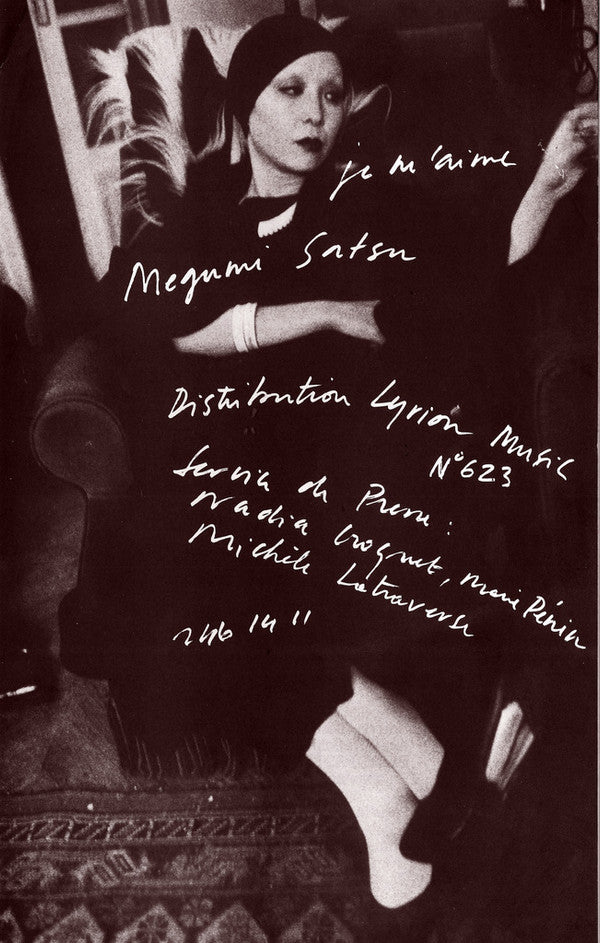 je m'aime
Megumi Satsu
Distribution Lyrion Music
N°623
Service de Presse :
Nadia Croquet, Marie Périer
Michèle Latraverse
246 14 11